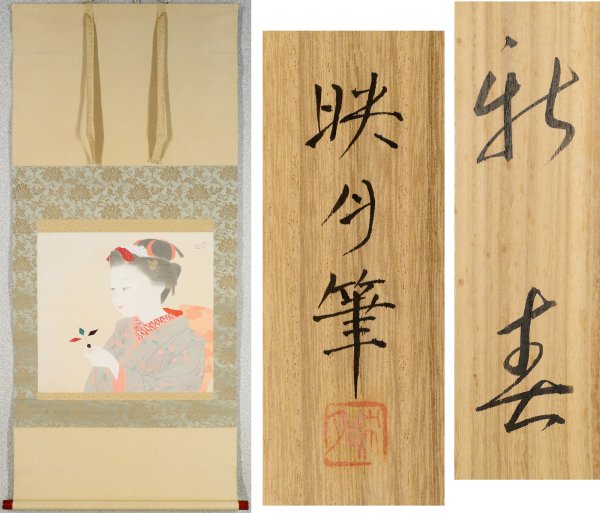 新春
映月筆